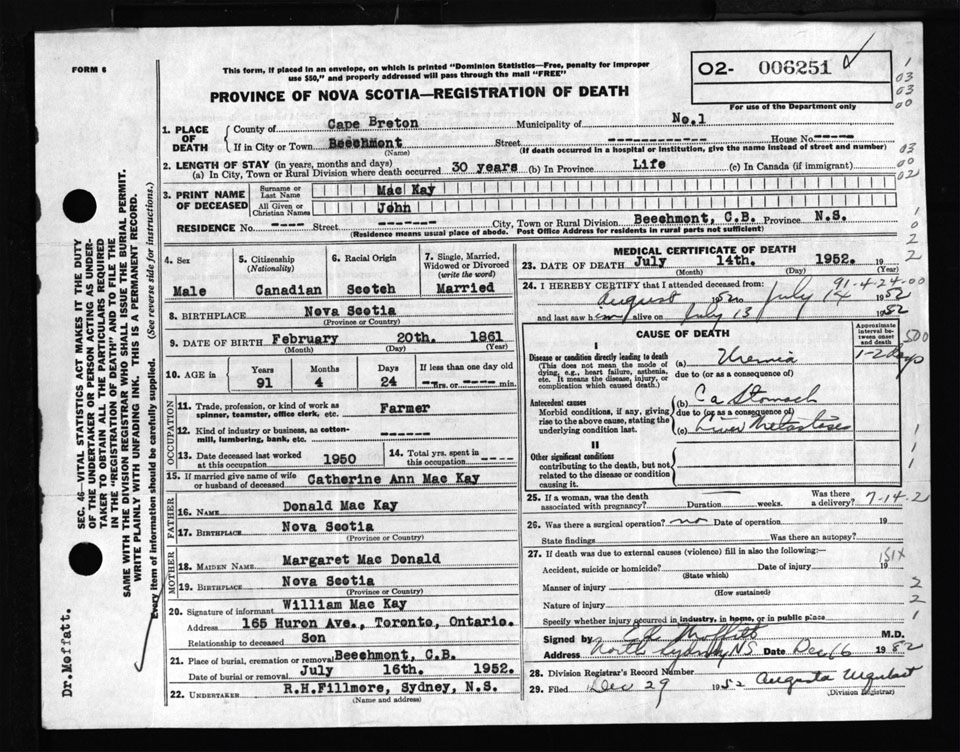 FORM 6
This form, if placed in an envelope, on which is printed "Dominion Statistics—Free, penalty for improper
use $50," and properly addressed will pass through the mail "FREE"
02- 006251
For use of the Department only
PROVINCE OF NOVA SCOTIA—REGISTRATION OF DEATH
1. PLACE OF DEATH
County of Cape Breton Municipality of No.1
If in City or Town Beechmont Street ----------- House No. ----
(Name) (If death occurred in a hospital or institution, give the name instead of street and number)
2. LENGTH OF STAY (in years, months and days)
(a) In City, Town or Rural Division where death occurred 30 years (b) In Province Life (c) In Canada (if immigrant)
3. PRINT NAME OF DECEASED
Surname or Last Name Mac Kay
All Given or Christian Names John
RESIDENCE No. ---- Street ------ City, Town or Rural Division Beechmont, C.B. Province N.S.
(Residence means usual place of abode. Post Office Address for residents in rural parts not sufficient)
4. Sex
Male
5. Citizenship
(Nationality)
Canadian
6. Racial Origin
Scotch
7. Single, Married,
Widowed or Divorced
(write the word)
Married
8. BIRTHPLACE Nova Scotia
(Province or Country)
9. DATE OF BIRTH February 20th. 1861
(Month) (Day) (Year)
10. AGE in
Years Months Days If less than one day old
91 4 24 --hrs. or ---- min.
OCCUPATION
11. Trade, profession, or kind of work as
spinner, teamster, office clerk, etc. Farmer
12. Kind of industry or business, as cotton-
mill, lumbering, bank, etc. ------
13. Date deceased last worked
at this occupation 1950
14. Total yrs. spent in
this occupation ----
15. If married give name of wife
or husband of deceased Catherine Ann Mac Kay
FATHER
16. NAME Donald Mac Kay
17. BIRTHPLACE Nova Scotia
(Province or Country)
MOTHER
18. MAIDEN NAME Margaret Mac Donald
19. BIRTHPLACE Nova Scotia
(Province or Country)
20. Signature of informant William Mac Kay
Address 165 Huron Ave., Toronto, Ontario.
Relationship to deceased Son
21. Place of burial, cremation or removal Beechmont, C.B.
Date of burial or removal July 16th. 1952.
22. UNDERTAKER R.H.Fillmore, Sydney, N.S.
(Name and address)
MEDICAL CERTIFICATE OF DEATH
23. DATE OF DEATH July 14th. 1952. 19
(Month) (Day) (Year)
91-4-24-00
24. I HEREBY CERTIFY that I attended deceased from:
August 1952 to July 14 1952
and last saw him alive on July 13 1952
CAUSE OF DEATH
Approximate
interval between
onset and
death
I
Disease or condition directly leading to death
(This does not mean the mode of
dying, e.g., heart failure, asthenia,
etc. It means the disease, injury, or
complication which caused death.)
(a) Uremia 1-2 days
due to (or as a consequence of)
Antecedent causes
Morbid conditions, if any, giving
rise to the above cause, stating the
underlying condition last.
(b) Ca Stomach
due to (or as a consequence of)
(c) Liver Metastases
II
Other significant conditions
contributing to the death, but not
related to the disease or condition
causing death.
25. If a woman, was the death
associated with pregnancy? Duration weeks. Was there
a delivery? 7-14-2
26. Was there a surgical operation? no Date of operation 19
State findings Was there an autopsy?
27. If death was due to external causes (violence) fill in also the following:—
151X
Accident, suicide or homicide? Date of injury 19
(State which)
Manner of injury
(How sustained)
Nature of injury
Specify whether injury occurred in industry, in home, or in public place
Signed by M.D.
Address North Sydney NS Date Dec 16 1952
28. Division Registrar's Record Number
29. Filed Dec 29 1952 Augusta Urquhart
(Division Registrar)
SEC. 46—VITAL STATISTICS ACT MAKES IT THE DUTY
OF THE UNDERTAKER OR PERSON ACTING AS UNDER-
TAKER TO OBTAIN ALL THE PARTICULARS REQUIRED
IN THE "REGISTRATION OF DEATH" AND TO FILE THE
SAME WITH THE DIVISION REGISTRAR WHO SHALL ISSUE THE BURIAL PERMIT.
WRITE PLAINLY WITH UNFADING INK. THIS IS A PERMANENT RECORD.
Every item of information should be carefully supplied. (See reverse side for instructions.)
Dr. Moffatt.